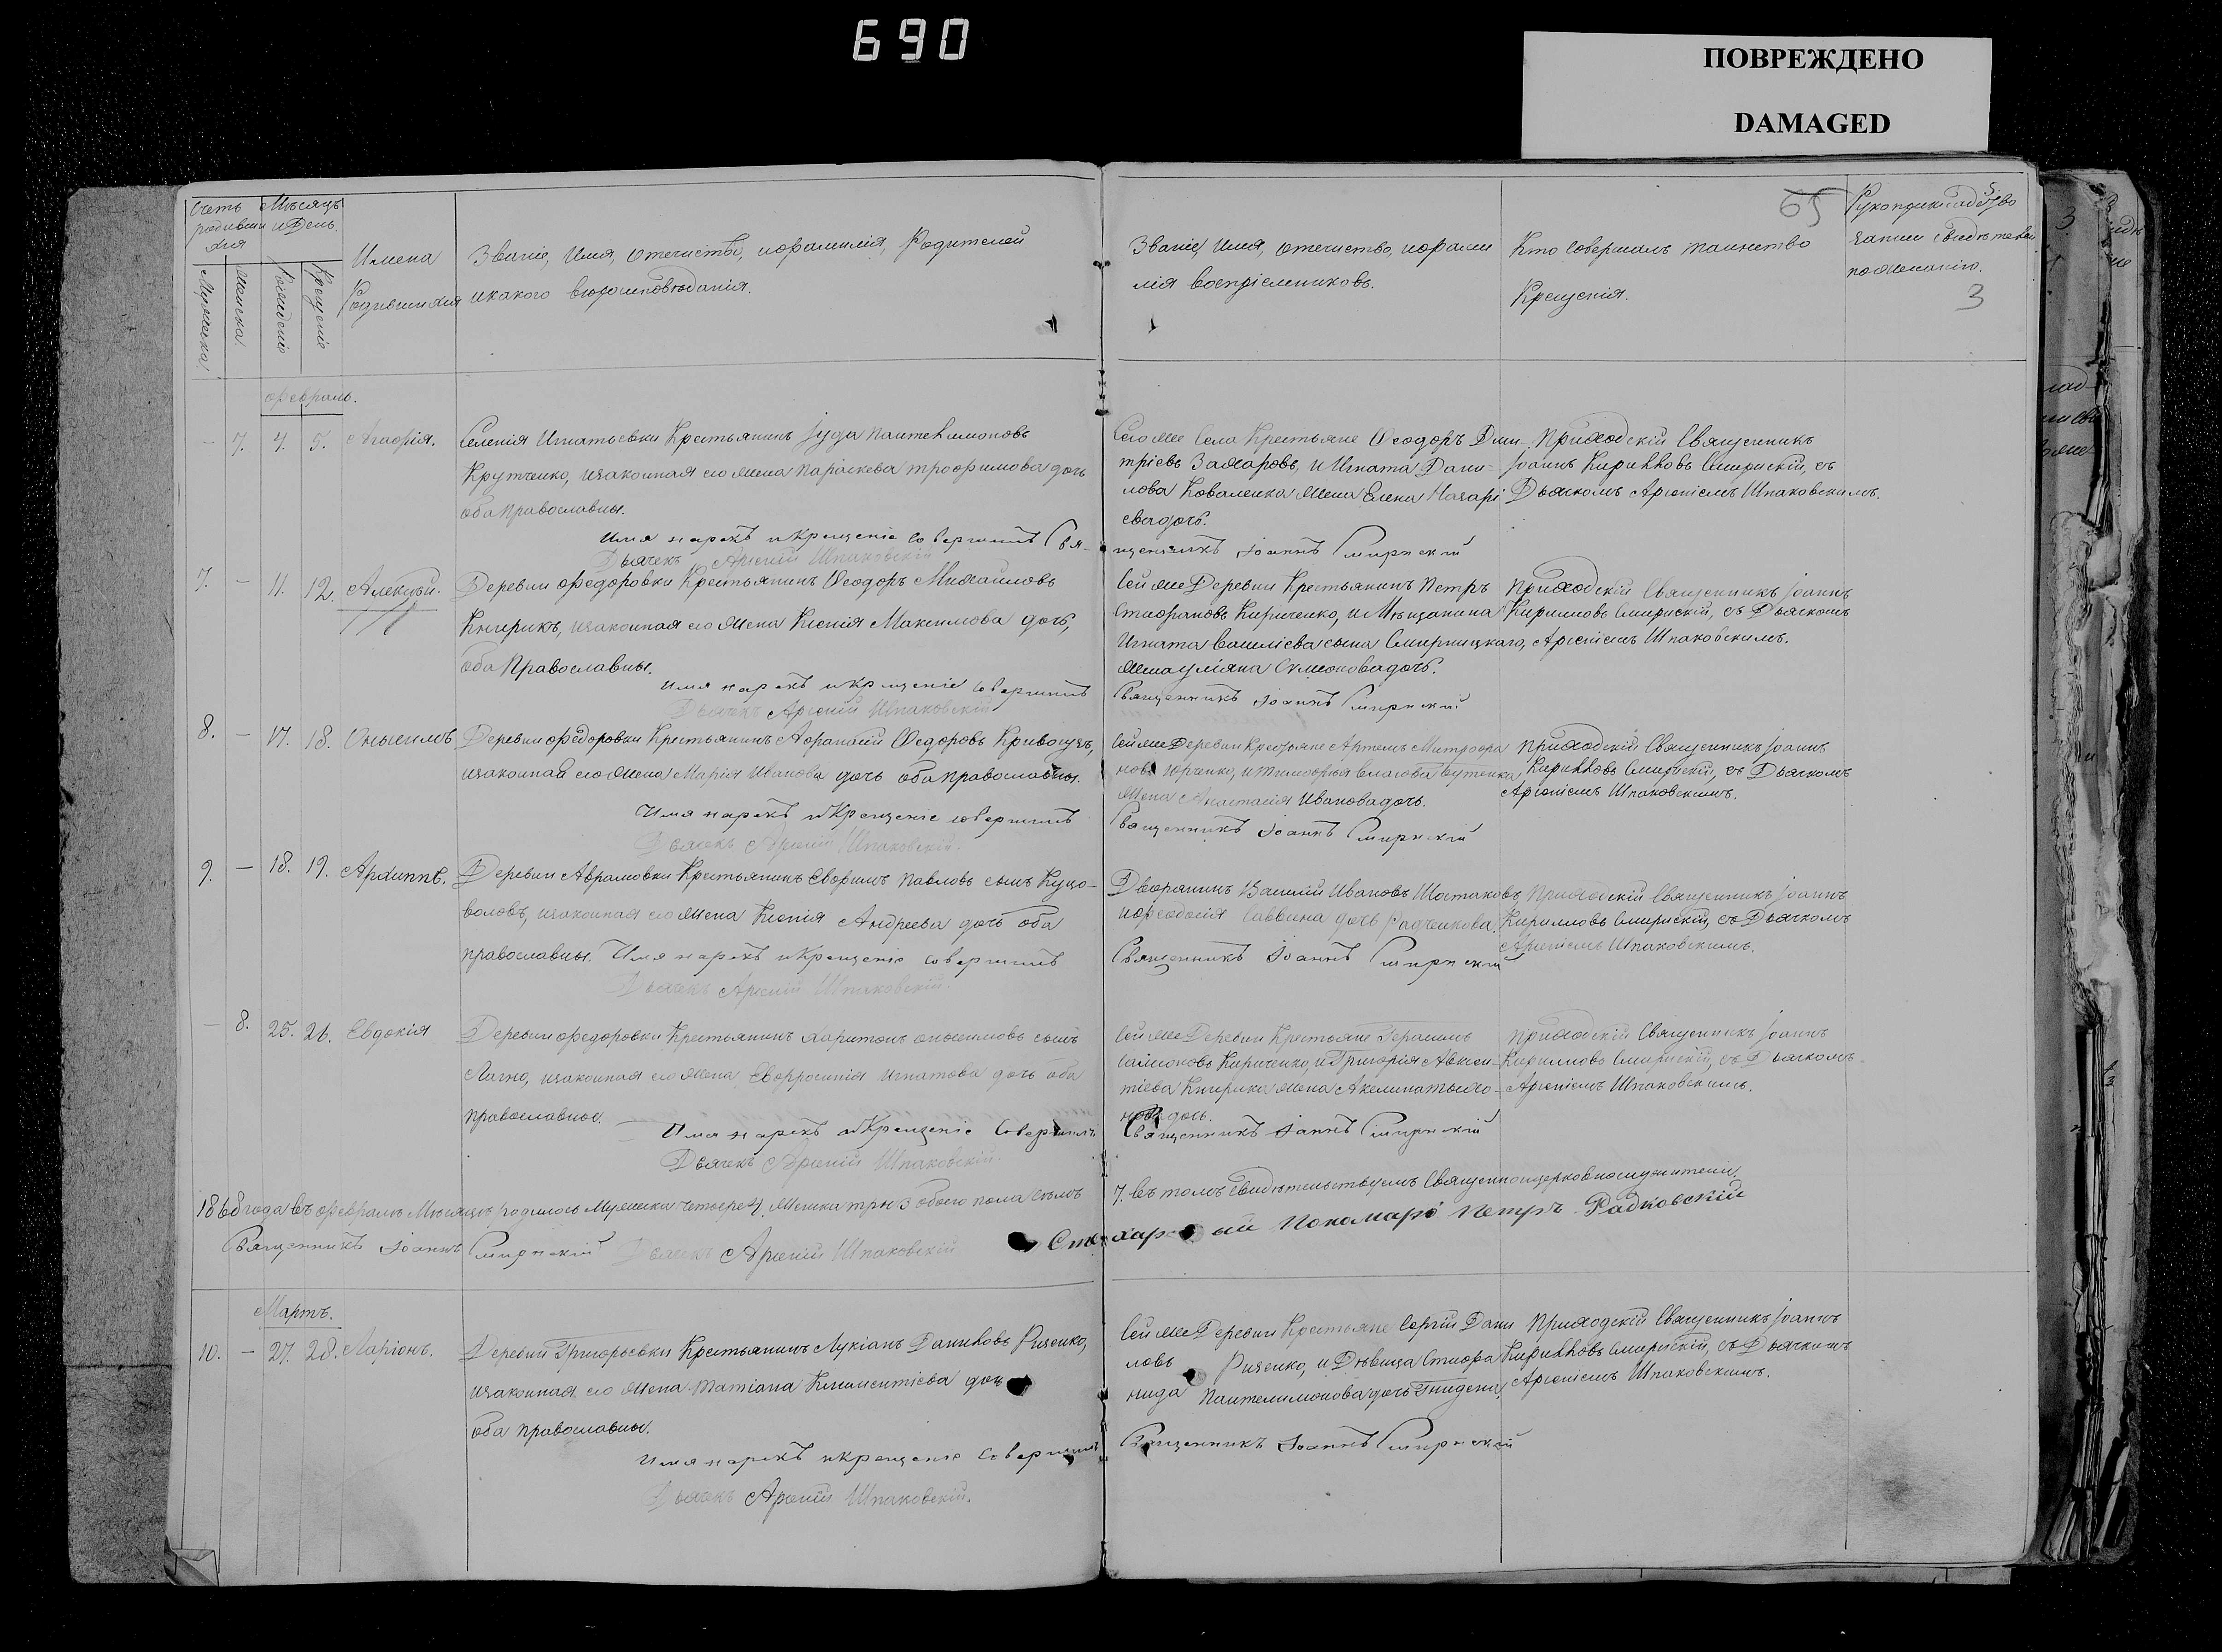 690
ПОВРЕЖДЕНО
DAMAGED
Счетъ
родивших
ся
Мѣсяцъ
и День.
Мужеска.
Женска.
Рожденіе
Крещеніе
Имена
Родившихся
Званіе, Имя, Отечество, и фамилія, Родителей
и какого вѣроисповѣданія.
Званіе, Имя, отечество, и фами
лія воспріемниковъ.
Кто совершалъ таинство
Крещенія.
65
5
записи свидѣтелей
по желанію.
3
Февраль.
- 7. 4. 5. Агафія.
Селенія Игнатьевки Крестьянинъ Іуда Пантелимоновъ
Крутченко, и законная его жена Параскева Трофимова дочь
оба православны.
Имя нарекъ и крещеніе совершилъ Свя-
щенникъ Іоаннъ Смирнскій
Дьячекъ Арсеній Шпаковскій
Сего же Села Крестьяне Ѳеодоръ Дми-
тріевъ Захаровъ, и Игната Дани-
лова Коваленка жена Елена Назарі
ева дочь.
Приходскій Священникъ
Іоаннъ Кирилловъ Смирнскій, съ
Дьячкомъ Арсеніемъ Шпаковскимъ.
7. - 11. 12. Алексѣй.
Деревни Федоровки Крестьянинъ Ѳеодоръ Михайловъ
Книрикъ, и законная его жена Ксенія Максимова дочь,
оба Православны.
Имя нарекъ и крещеніе совершилъ
Дьячекъ Арсеній Шпаковскій
Сей же Деревни Крестьянинъ Петръ
Стефановъ Кириченко, и Мѣщанина
Игната Василіева сына Смирницкаго,
жена Уліяна Симонова дочь.
Священникъ Іоаннъ Смирнскій
Приходскій Священникъ Іоаннъ
Кирилловъ Смирнскій, съ Дьячкомъ
Арсеніемъ Шпаковскимъ.
8. - 17. 18. Онисимъ
Деревни Федоровки Крестьянинъ Афанасій Ѳедоровъ
и законная его жена Марія Иванова дочь оба православны.
Имя нарекъ и Крещеніе совершилъ
Дьячекъ Арсеній Шпаковскій.
Сей же Деревни Крестьяне Артемъ Митрофа
новъ Юрченко, и Тимофея Власова
жена Анастасія Иванова дочь.
Священникъ Іоаннъ Смирнскій
Приходскій Священникъ Іоаннъ
Кирилловъ Смирнскій, съ Дьячкомъ
Арсеніемъ Шпаковскимъ.
9. - 18. 19. Архиппъ.
Деревни Аврамовки Крестьянинъ Ефимъ Павловъ сынъ Куцо-
воловъ, и законная его жена Ксенія Андреева дочь оба
православны. Имя нарекъ и Крещеніе совершилъ
Дьячекъ Арсеній Шпаковскій.
Дворянинъ Василій Ивановъ Шостаковъ,
и Феодосія Саввина дочь Радченкова.
Священникъ Іоаннъ Смирнскій
Приходскій Священникъ Іоаннъ
Кирилловъ Смирнскій, съ Дьячкомъ
Арсеніемъ Шпаковскимъ.
- 8. 25. 26. Евдокія
Деревни Федоровки Крестьянинъ Харитонъ Онисимовъ сынъ
Лагно, и законная его жена Евфросинія Игнатова дочь оба
православны.
Имя нарекъ и Крещеніе Совершилъ
Дьячекъ Арсеній Шпаковскій.
Сей же Деревни Крестьяне Герасимъ
Кириченко, и Григорія Авксен-
тіева Книрика жена Акелина
нова дочь.
Священникъ Іоаннъ Смирнскій
Приходскій Священникъ Іоаннъ
Кирилловъ Смирнскій, съ Дьячкомъ
Арсеніемъ Шпаковскимъ.
1868 года въ февралѣ Мѣсяцѣ родилось Мужеска четыре 4. Женска три 3 обоего пола семь
7. въ томъ свидѣтельствуемъ Священноцерковнослужители.
Священникъ Іоаннъ Смирнскій Дьячекъ Арсеній Шпаковскій
Пономарь Петръ Радковскій
Мартъ.
10. - 27. 28. Ларіонъ.
Деревни Григорьевки Крестьянинъ Лукіанъ Даниловъ Ризенко,
и законная его жена Татіана Климентіева доч
оба православны.
Имя нарекъ и крещеніе совершилъ
Дьячекъ Арсеній Шпаковскій.
Сей же Деревни Крестьяне Сергій Дани
ловъ Ризенко, и Дѣвица Стефа
нида Пантелимонова дочь
Священникъ Іоаннъ Смирнскій
Приходскій Священникъ Іоаннъ
Кирилловъ Смирнскій, съ Дьячкомъ
Арсеніемъ Шпаковскимъ.